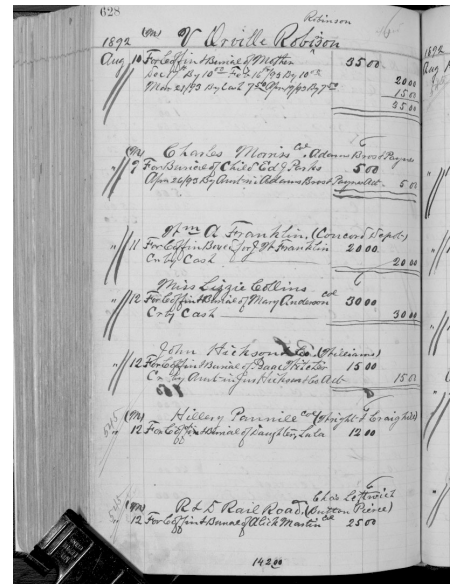 628
Robinson
1892 (Mr) V Orville Robison
Aug 10 For Coffin & Burial of Mother 35 00
Dec 1st By 10 00 Feb 16/93 By 10 00 20 00
Mar 27/93 By Cash 7 50 Apr 9/93 By 7 50 15 00
35 00
(Mr) Charles Morriss Col. Adams Bros & Paynes
" 9 For Burial of Child Ed J. Perks 5 00
Apr 26/93 By Amt in Adams Bros & Paynes Act 5 00
Wm A Franklin. (Concord Depot)
" 11 For Coffin Box &c for J W Franklin 20 00
Cr by Cash 20 00
Miss Lizzie Collins
" 12 For Coffin & Burial of Mary Anderson col 30 00
Cr by Cash 30 00
John Hickson & Co. (Williams)
" 12 For Coffin & Burial of Page 15 00
Cr by Amt in Jno Hickson & Co Act 15 00
(Mr) Hillery Pannill col (Wright & Craighill)
" 12 For Coffin & Burial of Daughter, Lula 12 00
Chas Leftwich
(Mr) R & D Rail Road. (Pierce)
" 12 For Coffin & Burial of Alick Martin col 25 00
142.00
1892
Aug